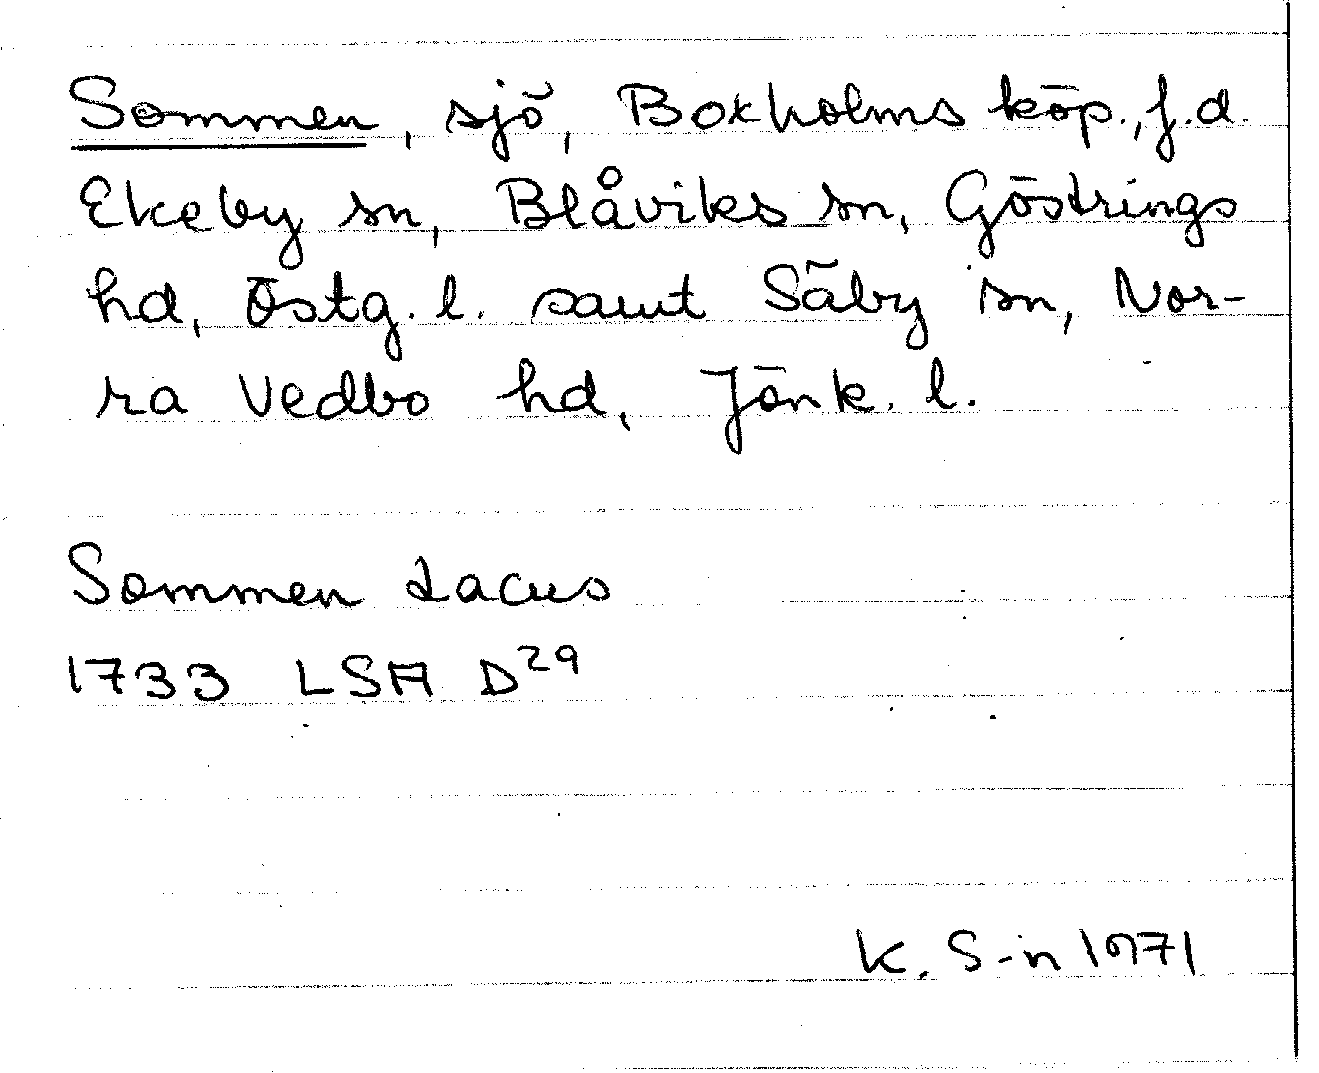 Sommen, sjö, Boxholms köp., f.d.
Ekeby sn, Blåviks sn, Göstrings
hd, Östg. l. samt Säby sn, Nor-
ra Vedbo hd, Jönk. l.
Sommen Lacus
1733 LSA D29
K. S-n 1971